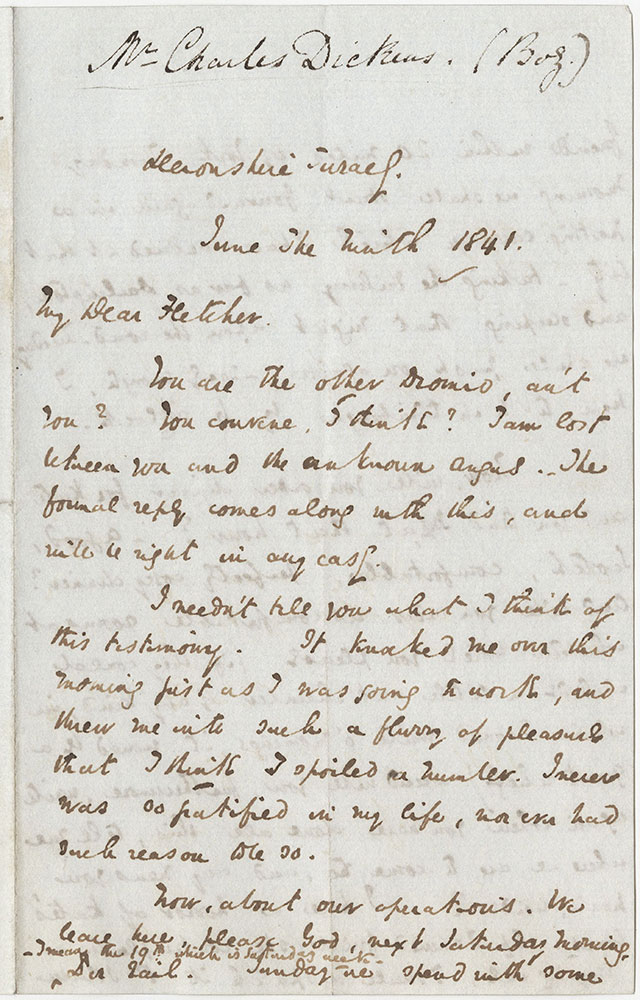 Mr Charles Dickens. (Boz.)
Devonshire Terrace.
June The Ninth 1841.
My Dear Fletcher.
You are the other Dromio, an't
you? You convene, I think? I am lost
between you and the unknown Angus. The
formal reply comes along with this, and
will be right in any case.
I needn't tell you what I think of
this testimony. It knocked me over this
morning just as I was going to work, and
threw me into such a flurry of pleasure
that I think I spoiled a number. I never
was so gratified in my life, nor ever had
such reason to be so.
Now, about our operations. We
leave here, please God, next Saturday morning
- I mean the 19th which is Saturday week -
per rail. Sunday we spend with some